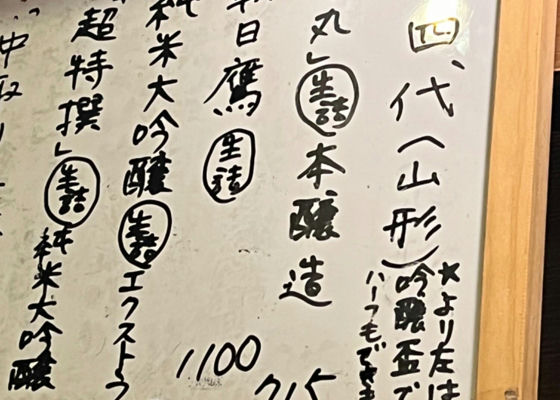 四代(山形)
*より左は
吟醸盃で
ハーフもでき
丸」生詰本醸造
715
朝日鷹生詰
1100
純米大吟醸生詰エクストラ
超特撰」生詰純米大吟醸
中取り